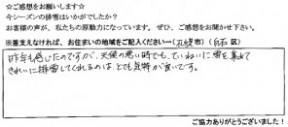 ☆ご感想をお願いします☆
今シーズンの排雪はいかがでしたか？
お客様の声が、私たちの原動力になっています。ぜひ、ご感想をお聞かせ下さい。
※差支えなければ、お住まいの地域をご記入ください→(札幌市)(白石区)
昨年も感じたのですが、天候の悪い時でも、ていねいに雪を集めて
きれいに排雪してくれるのは、とても気持が良いです。
ご協力ありがとうございました！